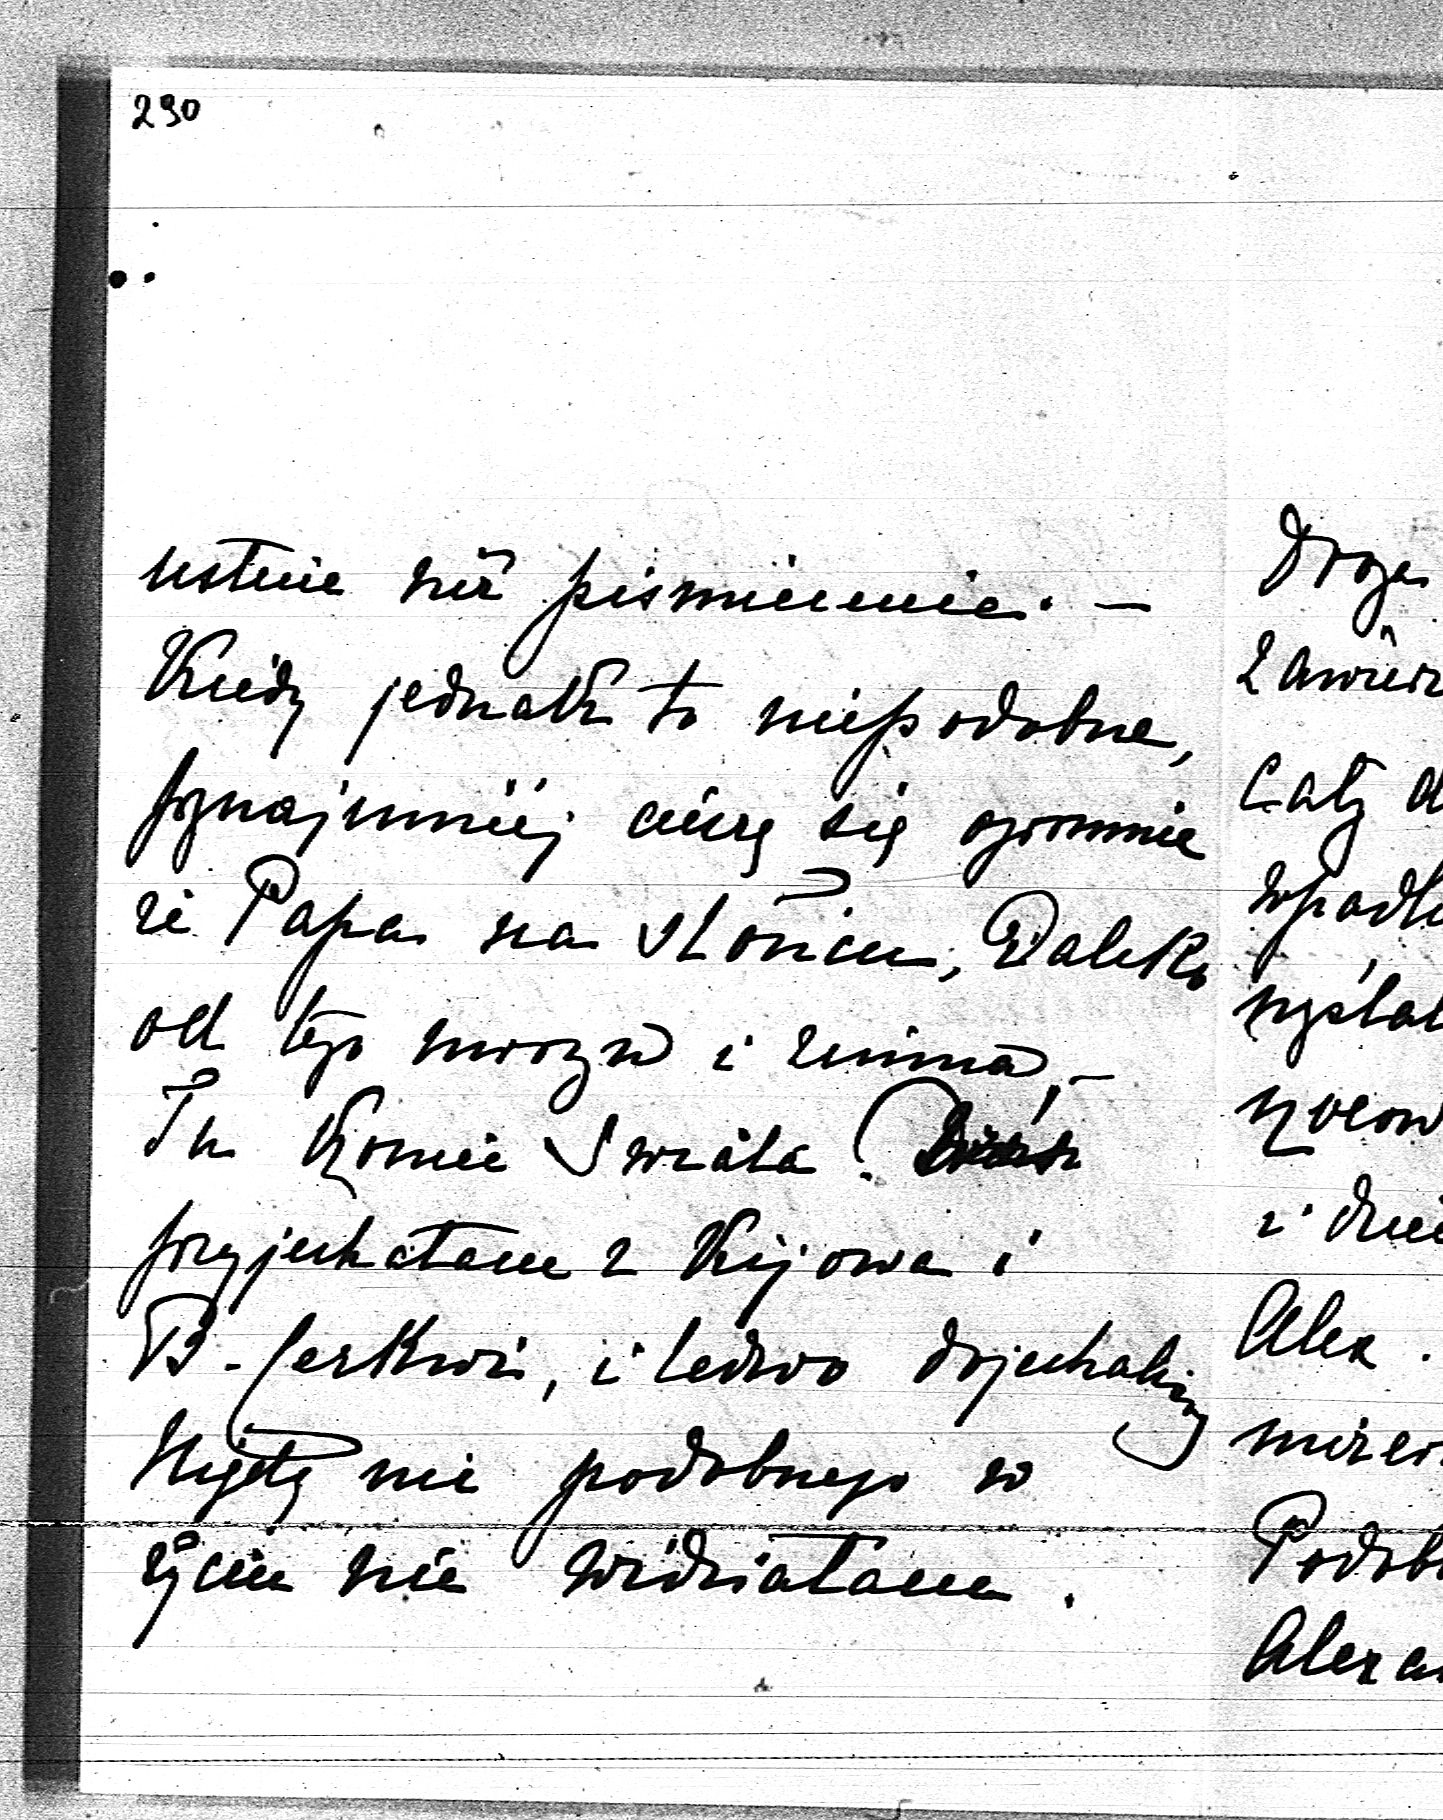 290
ustnie niż piśmiennie. —
Kiedy jednak to niepodobne,
przynajmniéj cieszę się ogromnie
że Papa na słońcu, Daleko
od tego mrozu i zimna, —
Tu koniec Świata! Dziś
przyjechałam z Kijowa i
B-Cerkwi, i ledwo dojechaliśmy
Nigdy nic podobnego w
życiu nie widziałam.
Droga
cały d
wpadł
i dzie
Alex.
Podob
Alexa